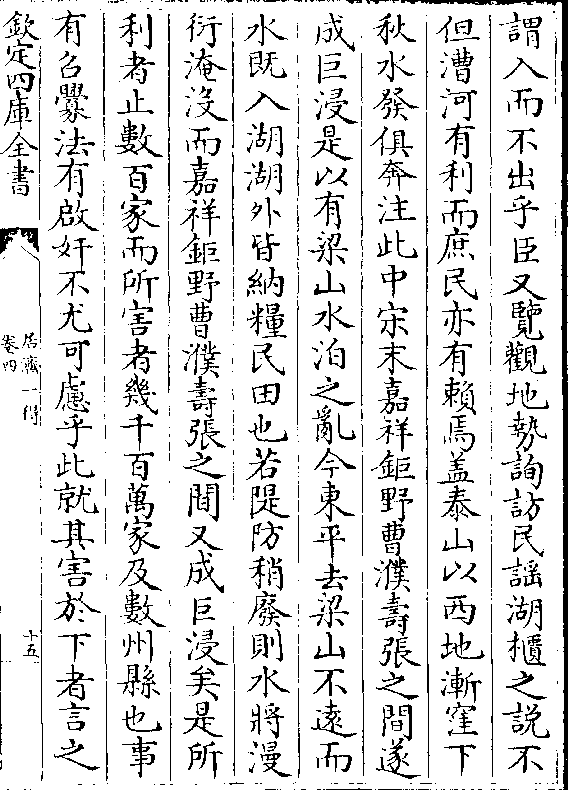 謂入而不出乎臣又覽觀地勢詢訪民謡湖櫃之説不
但漕河有利而庶民亦有賴焉盖泰山以西地漸窪下
秋水發俱奔注此中宋末嘉祥鉅野曹濮壽張之間遂
成巨浸是以有梁山水泊之亂今東平去梁山不遠而
水既入湖湖外皆納糧民田也若隄防稍廢則水將漫
衍淹沒而嘉祥鉅野曹濮壽張之間又成巨浸矣是所
利者止數百家而所害者幾千百萬家及數州縣也事
有召釁法有啟奸不尤可慮乎此就其害於下者言之
欽定四庫全書
居濟一得
卷四
十五